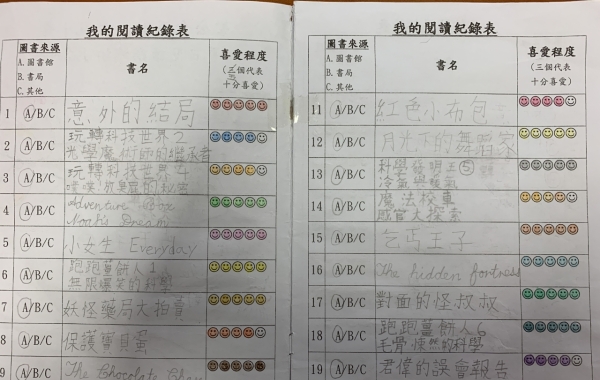 我的閱讀紀錄表
圖書來源
A. 圖書館
B. 書局
C. 其他
書名
喜愛程度
(三個代表
十分喜愛)
1 A/B/C 意外的結局
2 A/B/C 玩轉科技世界2
光學魔術師的繼承者
3 A/B/C 玩轉科技世界4
的秘密
4 A/B/C Adventure Box
Noah's Dream
5 A/B/C 小女生 Everyday
6 A/B/C 跑跑薑餅人1
無限爆笑的科學
7 A/B/C 妖怪藥局大拍賣
8 A/B/C 保護寶貝蛋
9 A/B/C The Chocolate
我的閱讀紀錄表
圖書來源
A. 圖書館
B. 書局
C. 其他
書名
喜愛程度
(三個代表
十分喜愛)
11 A/B/C 紅色小布包
12 A/B/C 月光下的舞蹈家
13 A/B/C 科學發明王⑤
冷氣與暖氣
14 A/B/C 魔法校車
感官大探索
15 A/B/C 乞丐王子
16 A/B/C The hidden fortress
17 A/B/C 對面的怪叔叔
18 A/B/C 跑跑薑餅人6
毛骨悚然的科學
19 A/B/C 君偉的誤會報告